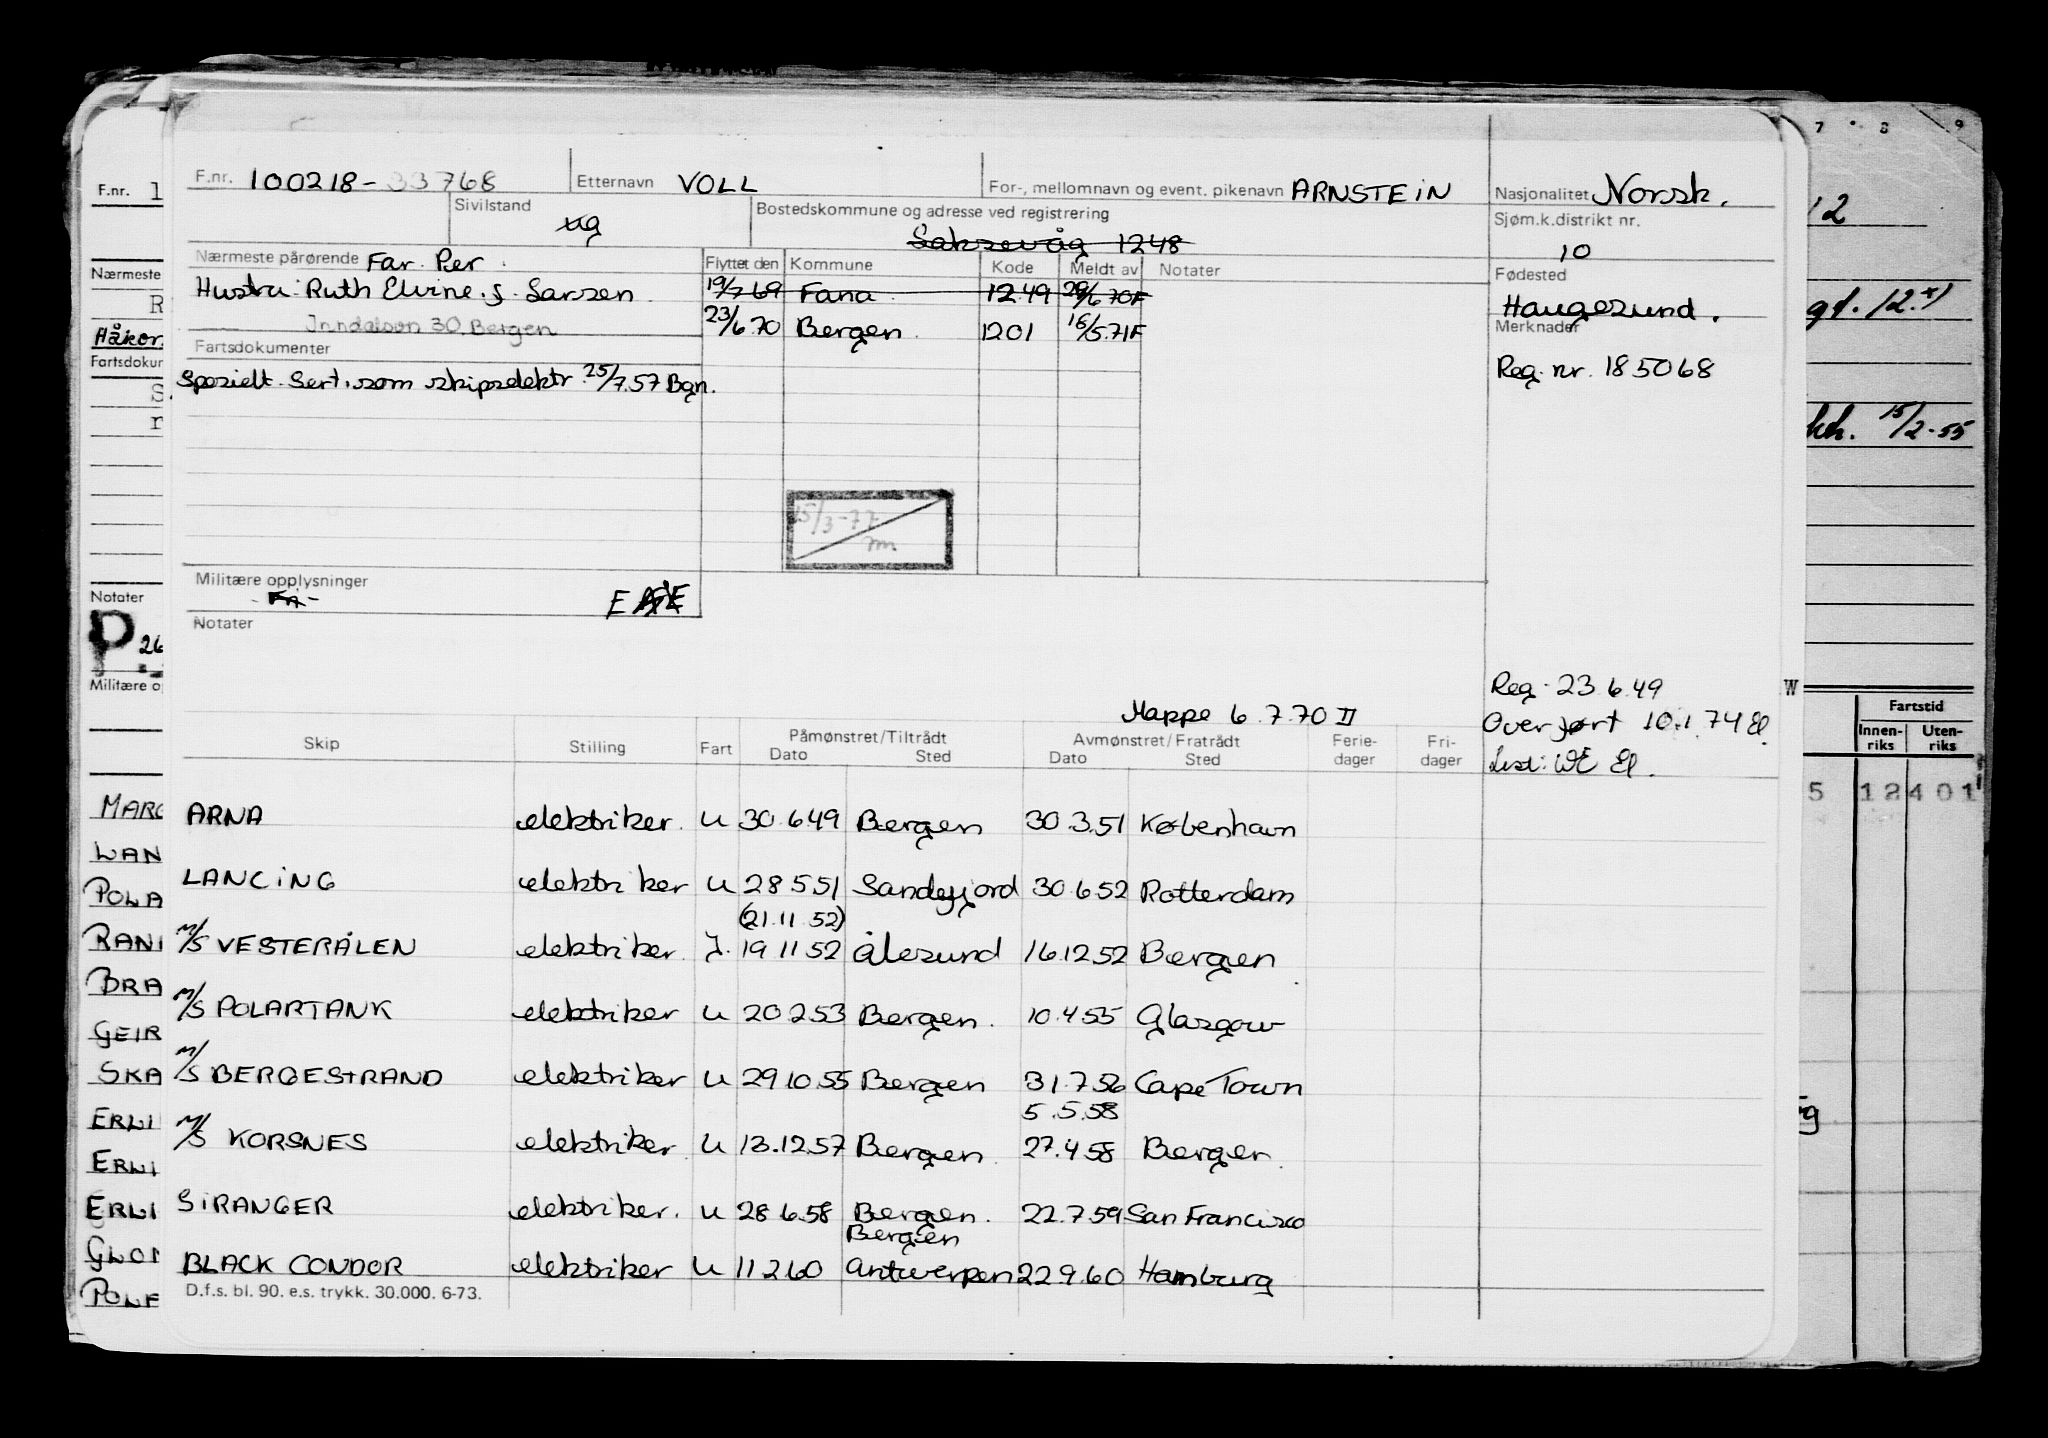 F.nr. 100218-33768 Etternavn VOLL For-, mellomnavn og event. pikenavn ARNSTEIN Nasjonalitet Norsk.
Sivilstand ug Bostedskommune og adresse ved registrering Sjøm.k.distrikt nr.
Laksevåg 1248 10
Nærmeste pårørende Far Per Flyttet den Kommune Kode Meldt av Notater Fødested
Hustru Ruth Elvine f. Larsen 19/7 69 Fana 1249 29/6 70F Haugesund.
Inndalsvn 30, Bergen 23/6 70 Bergen 1201 16/5.71F Merknader
Fartsdokumenter
Spesielt Sert. som skipselektr 25/7.57 Bgn. Reg. nr. 185068
15/3-77
Militære opplysninger
Notater
Reg. 23.6.49
Mappe 6.7.70 II
Overført 10.1.74 El.
Skip Stilling Fart Påmønstret/Tiltrådt Dato Sted Avmønstret/Fratrådt Dato Sted Ferie-dager Fri-dager
ARNA elektriker. U 30.6.49 Bergen 30.3.51 København
LANCING elektriker U 28.5.51 Sandefjord 30.6.52 Rotterdam
(21.11.52)
M/S VESTERÅLEN elektriker. I. 19.11.52 Ålesund 16.12.52 Bergen
M/S POLARTANK elektriker U 20.2.53 Bergen. 10.4.55 Glasgow
M/S BERGESTRAND elektriker U 29.10.55 Bergen 31.7.56 Cape Town
5.5.58
M/S KORSNES elektriker U 13.12.57 Bergen 27.4.58 Bergen
SIRANGER elektriker. U 28.6.58 Bergen. 22.7.59 San Francisco
Bergen
BLACK CONDOR elektriker U 11.2.60 Antwerpen 22.9.60 Hamburg
D.f.s. bl. 90. e.s. trykk. 30.000. 6-73.
F.nr. 1
Nærmeste
R
Håkor
Fartsdokur
Notater
P 26
Militære o
MARG
LAN
POLA
RANI
BRA
GEIR
SKA
ERLI
ERLI
ERLI
GLOR
7 8 9
12
gt. 12.
15/2-55
W
Fartstid
Innen-riks Uten-riks
5 12401